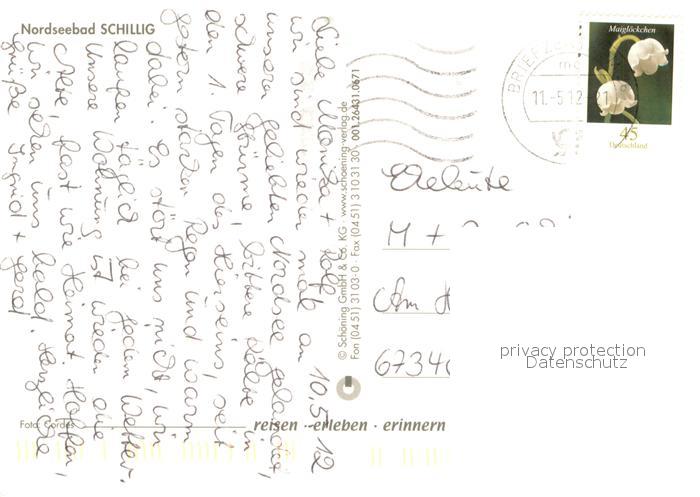 Nordseebad SCHILLIG
10.5.12
Liebe Monika + Rolf
wir sind wieder mal an
unserer geliebten Nordsee gelandet,
schwere Stürme, bittere Kälte in
den 1. Tagen des Hierseins, seit
gestern starken Regen und warm
dabei. Es stört uns nicht, wir
laufen täglich bei jedem Wetter.
Unsere Wohnung ist wieder die
Alte, fast wie Heimat. Hoffen,
wir sehen uns bald. Herzliche
Grüße Ingrid + Gerd
Foto: Cordes
© Schöning GmbH & Co. KG · www.schoening-verlag.de
Fon (04 51) 31 03-0 · Fax (04 51) 3 10 31 30 · 001.26431.0671
reisen · erleben · erinnern
Maiglöckchen
45
Deutschland
11.-5.12
Eheleute
M +
Am
6734
privacy protection
Datenschutz